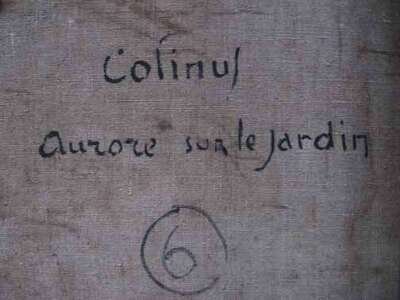 Colinus
Aurore sur le Jardin
6